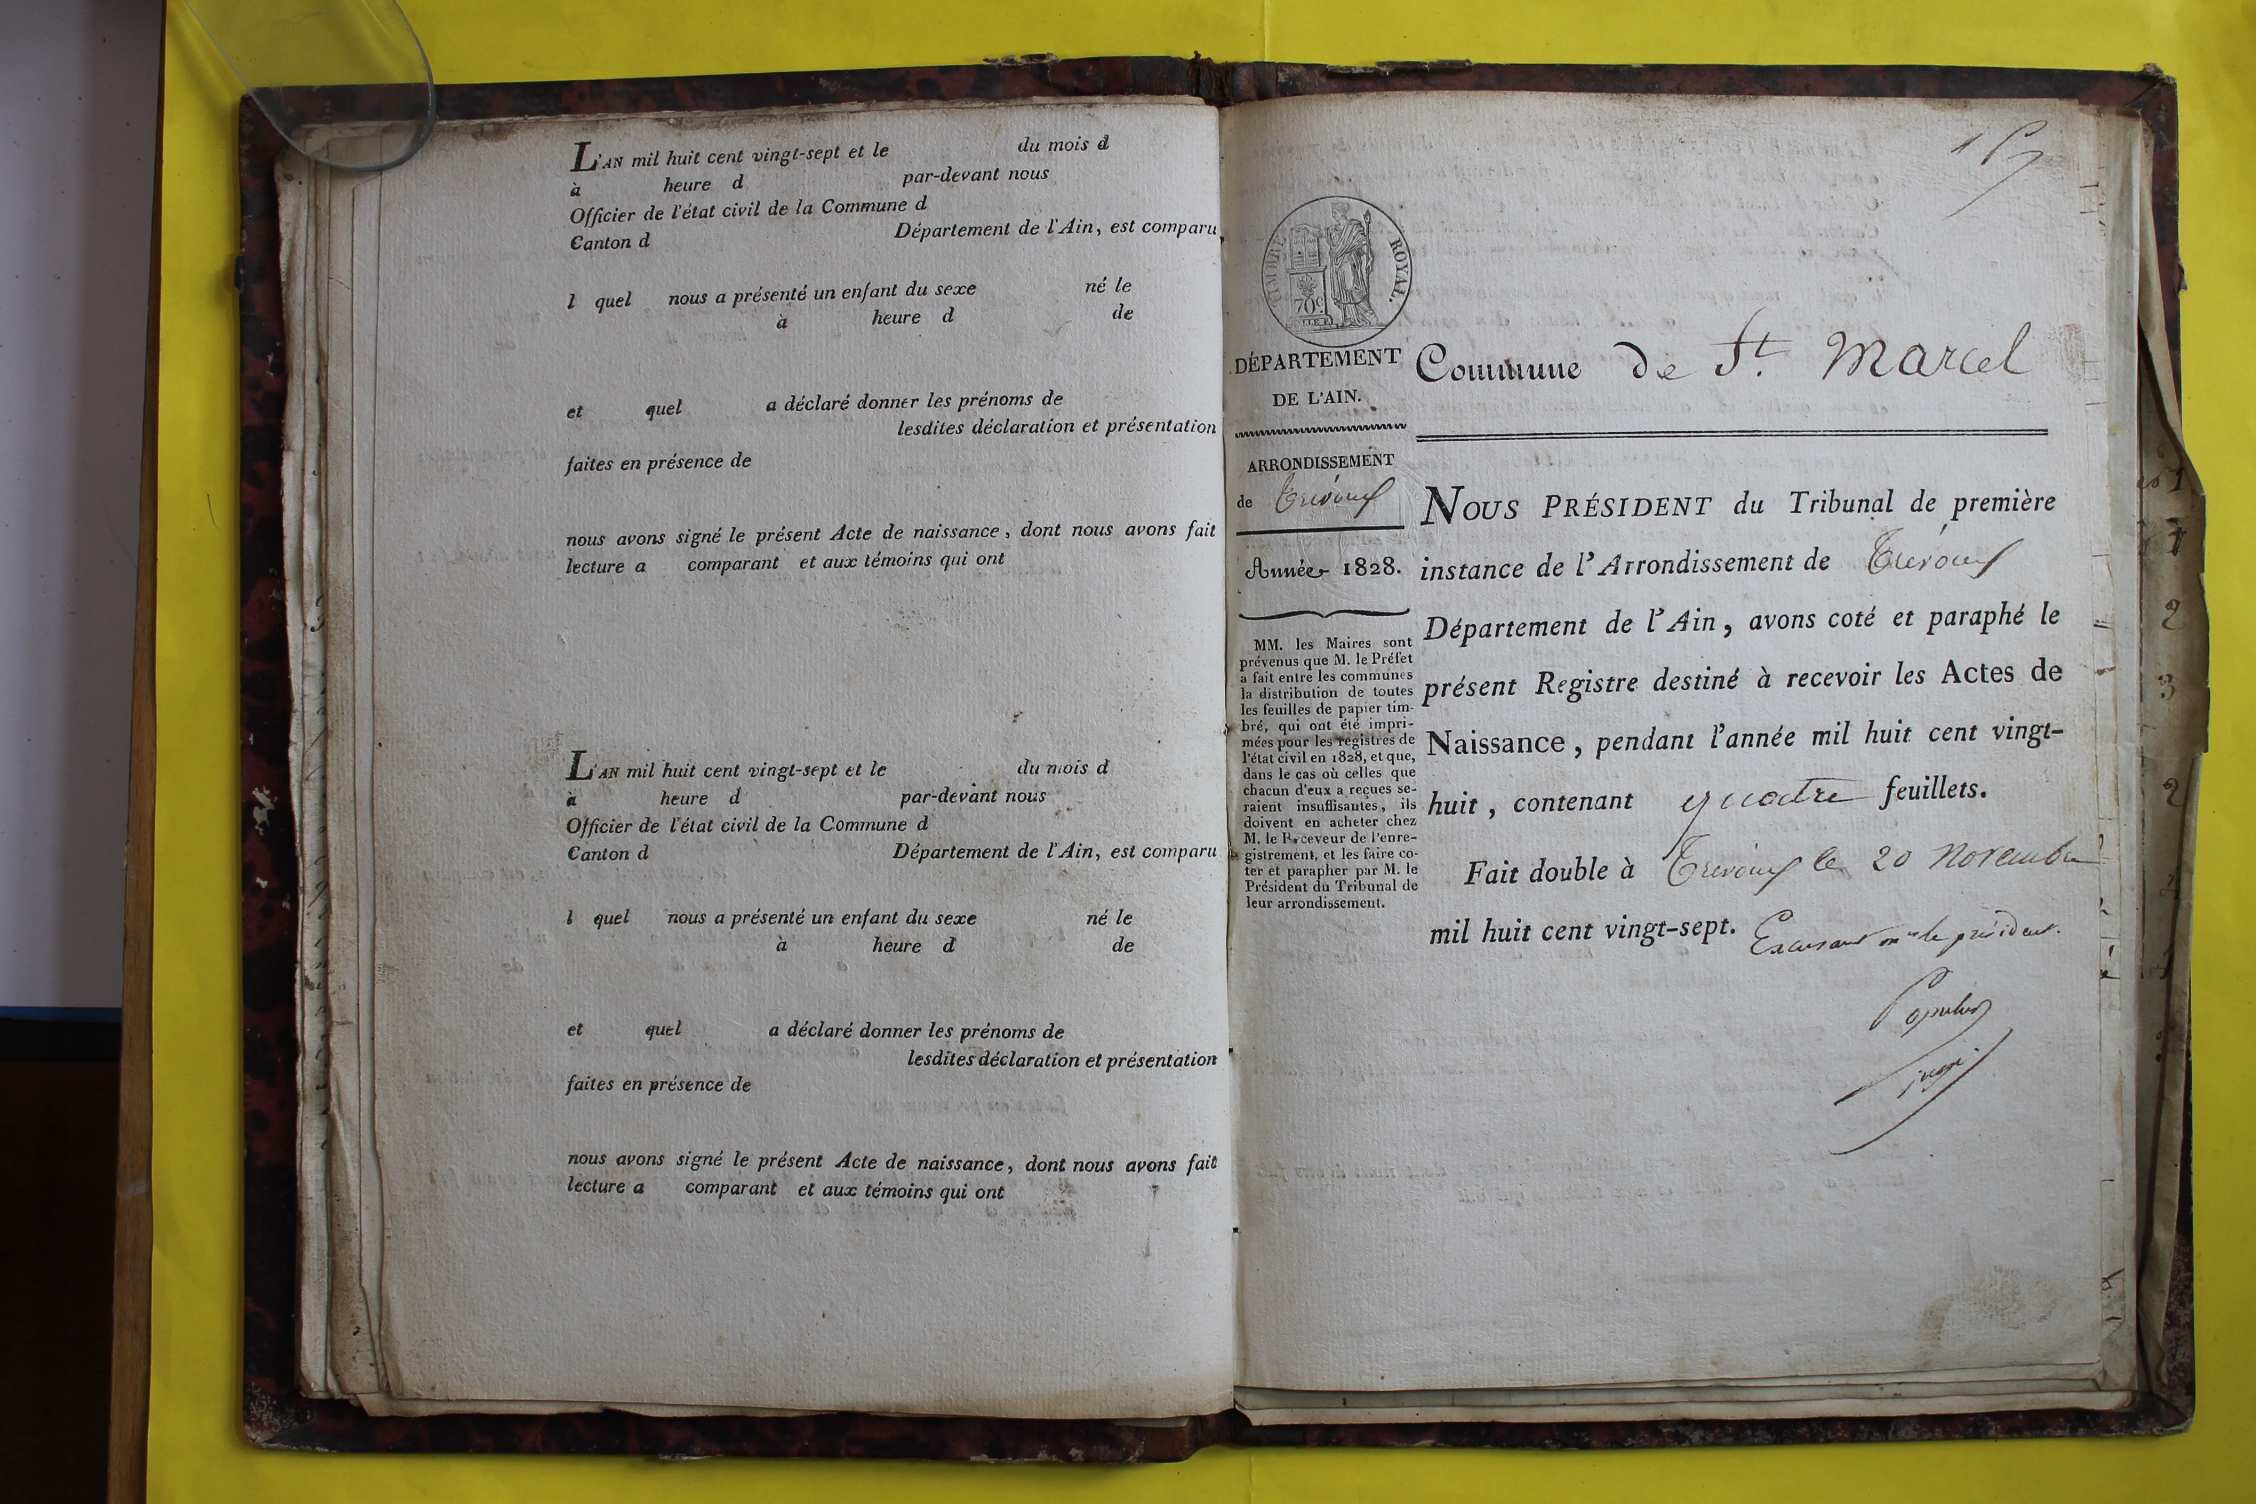 L'AN mil huit cent vingt-sept et le du mois d
à heure d par-devant nous
Officier de l'état civil de la Commune d
Canton d Département de l'Ain, est comparu
l quel nous a présenté un enfant du sexe né le
à heure d de
et quel a déclaré donner les prénoms de
lesdites déclaration et présentation
faites en présence de
nous avons signé le présent Acte de naissance, dont nous avons fait
lecture a comparant et aux témoins qui ont
L'AN mil huit cent vingt-sept et le du mois d
à heure d par-devant nous
Officier de l'état civil de la Commune d
Canton d Département de l'Ain, est comparu
l quel nous a présenté un enfant du sexe né le
à heure d de
et quel a déclaré donner les prénoms de
lesdites déclaration et présentation
faites en présence de
nous avons signé le présent Acte de naissance, dont nous avons fait
lecture a comparant et aux témoins qui ont
TIMBRE ROYAL.
70c
DÉPARTEMENT
DE L'AIN.
ARRONDISSEMENT
de Trévoux
Année 1828.
MM. les Maires sont
prévenus que M. le Préfet
a fait entre les communes
la distribution de toutes
les feuilles de papier tim-
bré, qui ont été impri-
mées pour les registres de
l'état civil en 1828, et que,
dans le cas où celles que
chacun d'eux a reçues se-
raient insuffisantes, ils
doivent en acheter chez
M. le Receveur de l'enre-
gistrement, et les faire co-
ter et parapher par M. le
Président du Tribunal de
leur arrondissement.
Commune de St. Marcel
NOUS PRÉSIDENT du Tribunal de première
instance de l'Arrondissement de Trévoux
Département de l'Ain, avons coté et paraphé le
présent Registre destiné à recevoir les Actes de
Naissance, pendant l'année mil huit cent vingt-
huit, contenant quatre feuillets.
Fait double à Trévoux le 20 Novembre
mil huit cent vingt-sept. Excusant mr le président.
Populus
juge